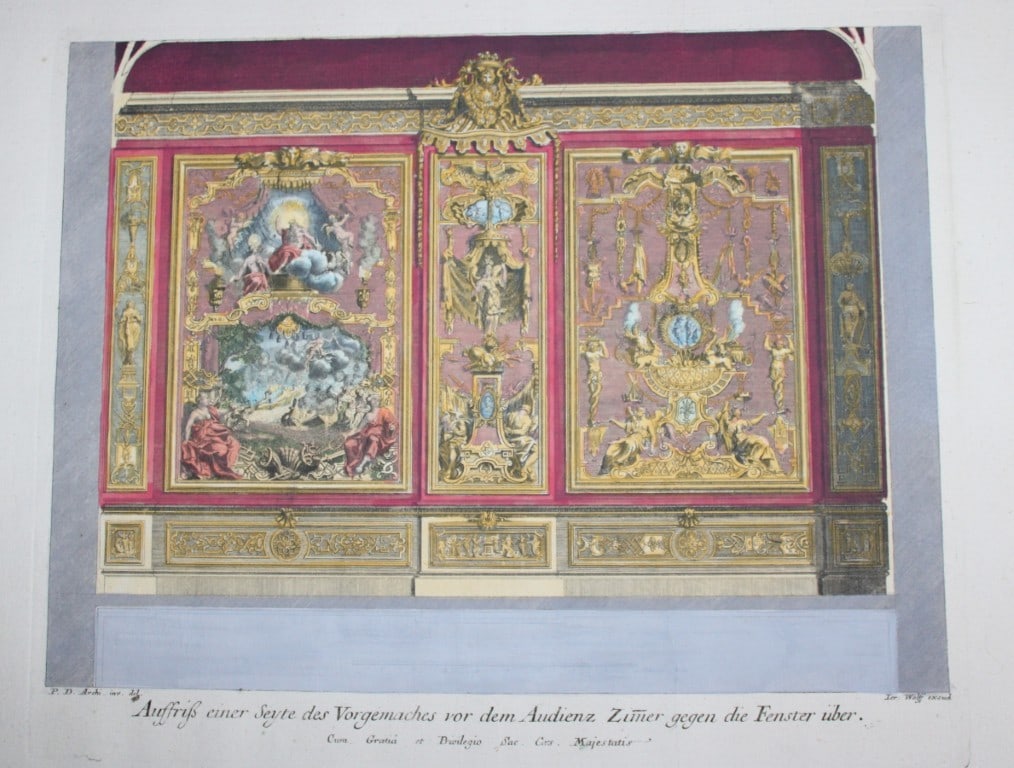 P. D. Archi. inv. del.
Ier. Wolff excud.
Auffriß einer Seyte des Vorgemaches vor dem Audienz Zim̄er gegen die Fenster über.
Cum Gratia et Privilegio Sac. Cæs. Majestatis